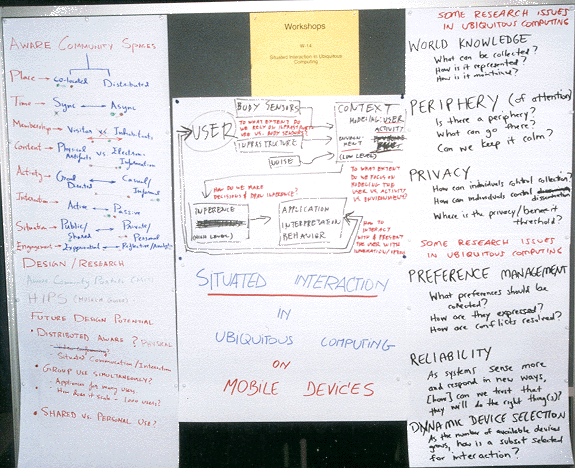 AWARE COMMUNITY SPACES
Place → co-located Distributed
Time → Sync → Async
Membership → Visitor vs Inhabitants
Content → Physical vs Electronic
Artifacts Information
Activity → Goal Casual/
Directed Informal
Interaction → Active Passive
Situation → Public/ Private/
Shared Personal
Engagement → Experiential
DESIGN/RESEARCH
Aware Community
HIPS
FUTURE DESIGN POTENTIAL
• DISTRIBUTED AWARE? PHYSICAL
- Situated Communication/Interaction
• GROUP USE SIMULTANEOUSLY?
- Appliances for many users
- How does it scale - 1000 users?
• SHARED VS. PERSONAL USE?
Workshops
W-14
Situated Interaction in Ubiquitous
Computing
USER
BODY SENSORS
TO WHAT EXTENT DO
WE RELY ON INFRASTRUCTURE
VS. BODY SENSORS?
INFRASTRUCTURE
NOISE
CONTEXT
MODELING: USER
ACTIVITY
ENVIRON-
MENT
(LOW LEVEL)
TO WHAT EXTENT
DO WE FOCUS ON
MODELING THE
USER VS. ACTIVITY
VS. ENVIRONMENT?
HOW DO WE MAKE
DECISIONS & DRAW INFERENCE?
INFERENCE
(HIGH LEVEL)
APPLICATION
INTERPRETATION
BEHAVIOR
HOW TO
INTERACT
WITH & PRESENT
THE USER WITH
SITUATED INTERACTION
IN
UBIQUITOUS COMPUTING
ON
MOBILE DEVICES
SOME RESEARCH ISSUES
IN UBIQUITOUS COMPUTING
WORLD KNOWLEDGE
What can be collected?
How is it represented?
How is it maintained?
PERIPHERY (of attention)
Is there a periphery?
What can go there?
Can we keep it calm?
PRIVACY
How can individuals control collection?
How can individuals control
dissemination
Where is the privacy/benefit
threshold?
SOME RESEARCH ISSUES
IN UBIQUITOUS COMPUTING
PREFERENCE MANAGEMENT
What preferences should be
collected?
How are they expressed?
How are conflicts resolved?
RELIABILITY
As systems sense more
and respond in new ways,
[how] can we trust that
they will do the right thing(s)?
DYNAMIC DEVICE SELECTION
As the number of available devices
grows, how is a subset selected
for interaction?